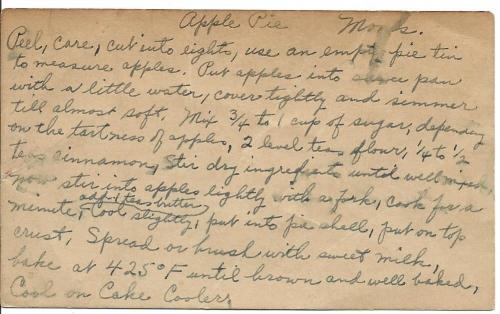 Apple Pie Moods.
Peel, core, cut into eights, use an empty pie tin
to measure apples. Put apples into sauce pan
with a little water, cover tightly and simmer
till almost soft. Mix 3/4 to 1 cup of sugar, depending
on the tartness of apples, 2 level teas flour, 1/4 to 1/2
teas cinnamon, Stir dry ingredients until well mixed,
now stir into apples lightly with a fork, cook for a
add 1 teas butter
minute, Cool slightly, put into pie shell, put on top
crust, Spread or brush with sweet milk,
bake at 425° F until brown and well baked,
Cool on Cake Coolers